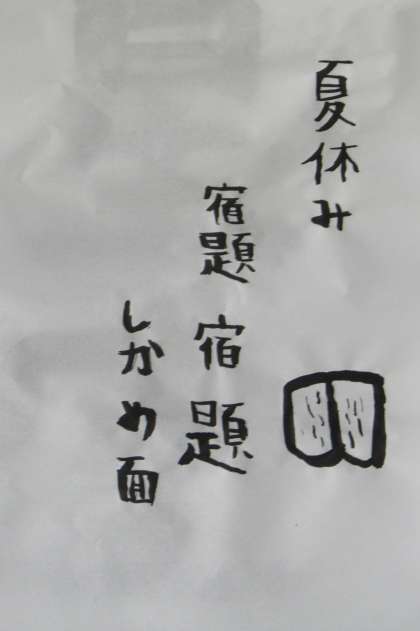 夏休み
宿題 宿題
しかめ面